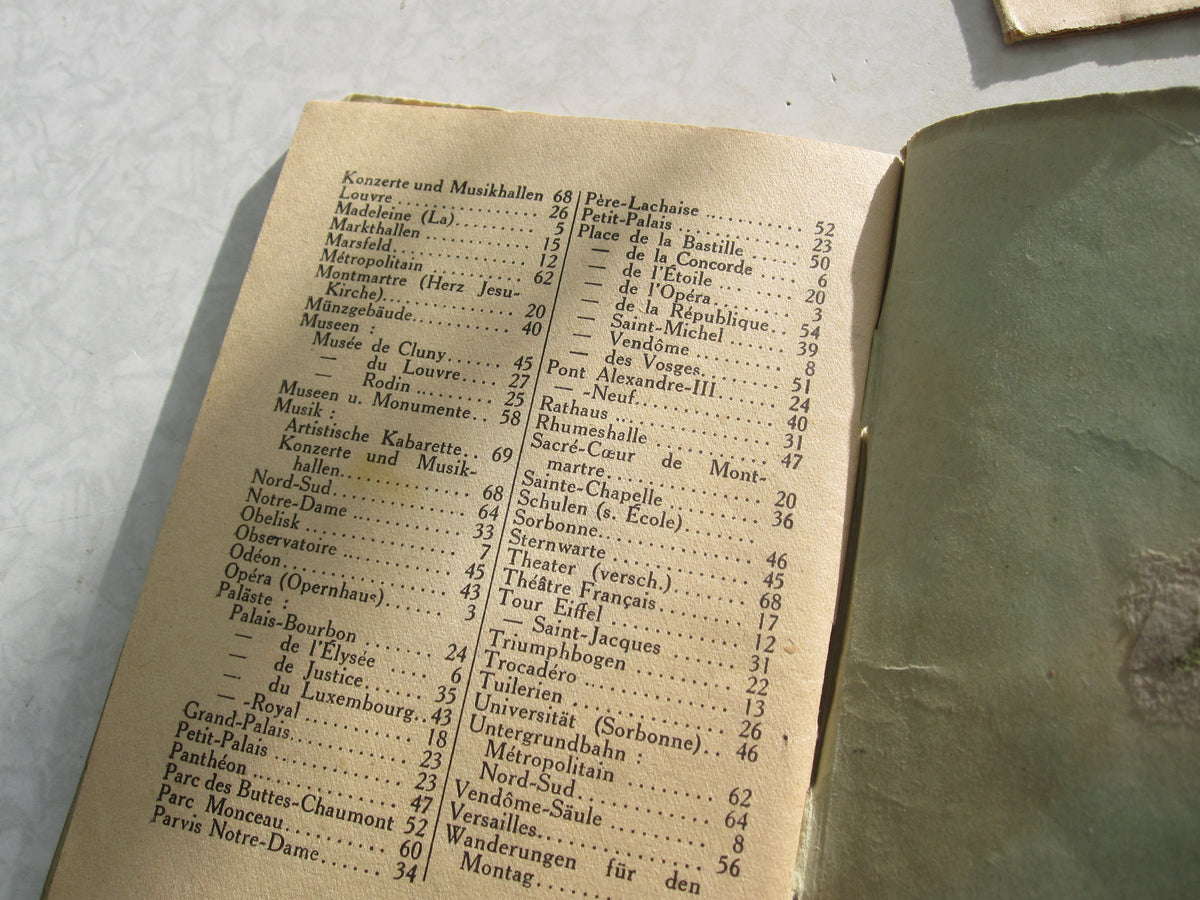 Konzerte und Musikhallen 68
Louvre .................. 26
Madeleine (La)........... 5
Markthallen ............. 15
Marsfeld................. 12
Métropolitain ........... 62
Montmartre (Herz Jesu-
Kirche).................. 20
Münzgebäude.............. 40
Museen :
Musée de Cluny...... 45
— du Louvre.... 27
— Rodin ........ 25
Museen u. Monumente.. 58
Musik :
Artistische Kabarette.. 69
Konzerte und Musik-
hallen................ 68
Nord-Sud................. 64
Notre-Dame .............. 33
Obelisk ................. 7
Observatoire ............ 45
Odéon.................... 43
Opéra (Opernhaus)...... 3
Paläste :
Palais-Bourbon ........ 24
— de l'Élysée ..... 6
— de Justice...... 35
— du Luxembourg.. 43
— -Royal .......... 18
Grand-Palais............. 23
Petit-Palais ............ 23
Panthéon ................ 47
Parc des Buttes-Chaumont 52
Parc Monceau............. 60
Parvis Notre-Dame...... 34
Père-Lachaise ........... 52
Petit-Palais ............ 23
Place de la Bastille .... 50
— de la Concorde .... 6
— de l'Étoile ....... 20
— de l'Opéra........ 3
— de la République.. 54
— Saint-Michel ...... 39
— Vendôme .......... 8
— des Vosges........ 51
Pont Alexandre-III...... 24
— -Neuf............. 40
Rathaus ................. 31
Rhumeshalle ............. 47
Sacré-Cœur de Mont-
martre................... 20
Sainte-Chapelle ......... 36
Schulen (s. École)......
Sorbonne................. 46
Sternwarte .............. 45
Theater (versch.)....... 68
Théâtre Français........ 17
Tour Eiffel ............. 12
— Saint-Jacques ..... 31
Triumphbogen ............ 22
Trocadéro ............... 13
Tuilerien ............... 26
Universität (Sorbonne).. 46
Untergrundbahn :
Métropolitain ......... 62
Nord-Sud.............. 64
Vendôme-Säule ........... 8
Versailles............... 56
Wanderungen für den
Montag.......